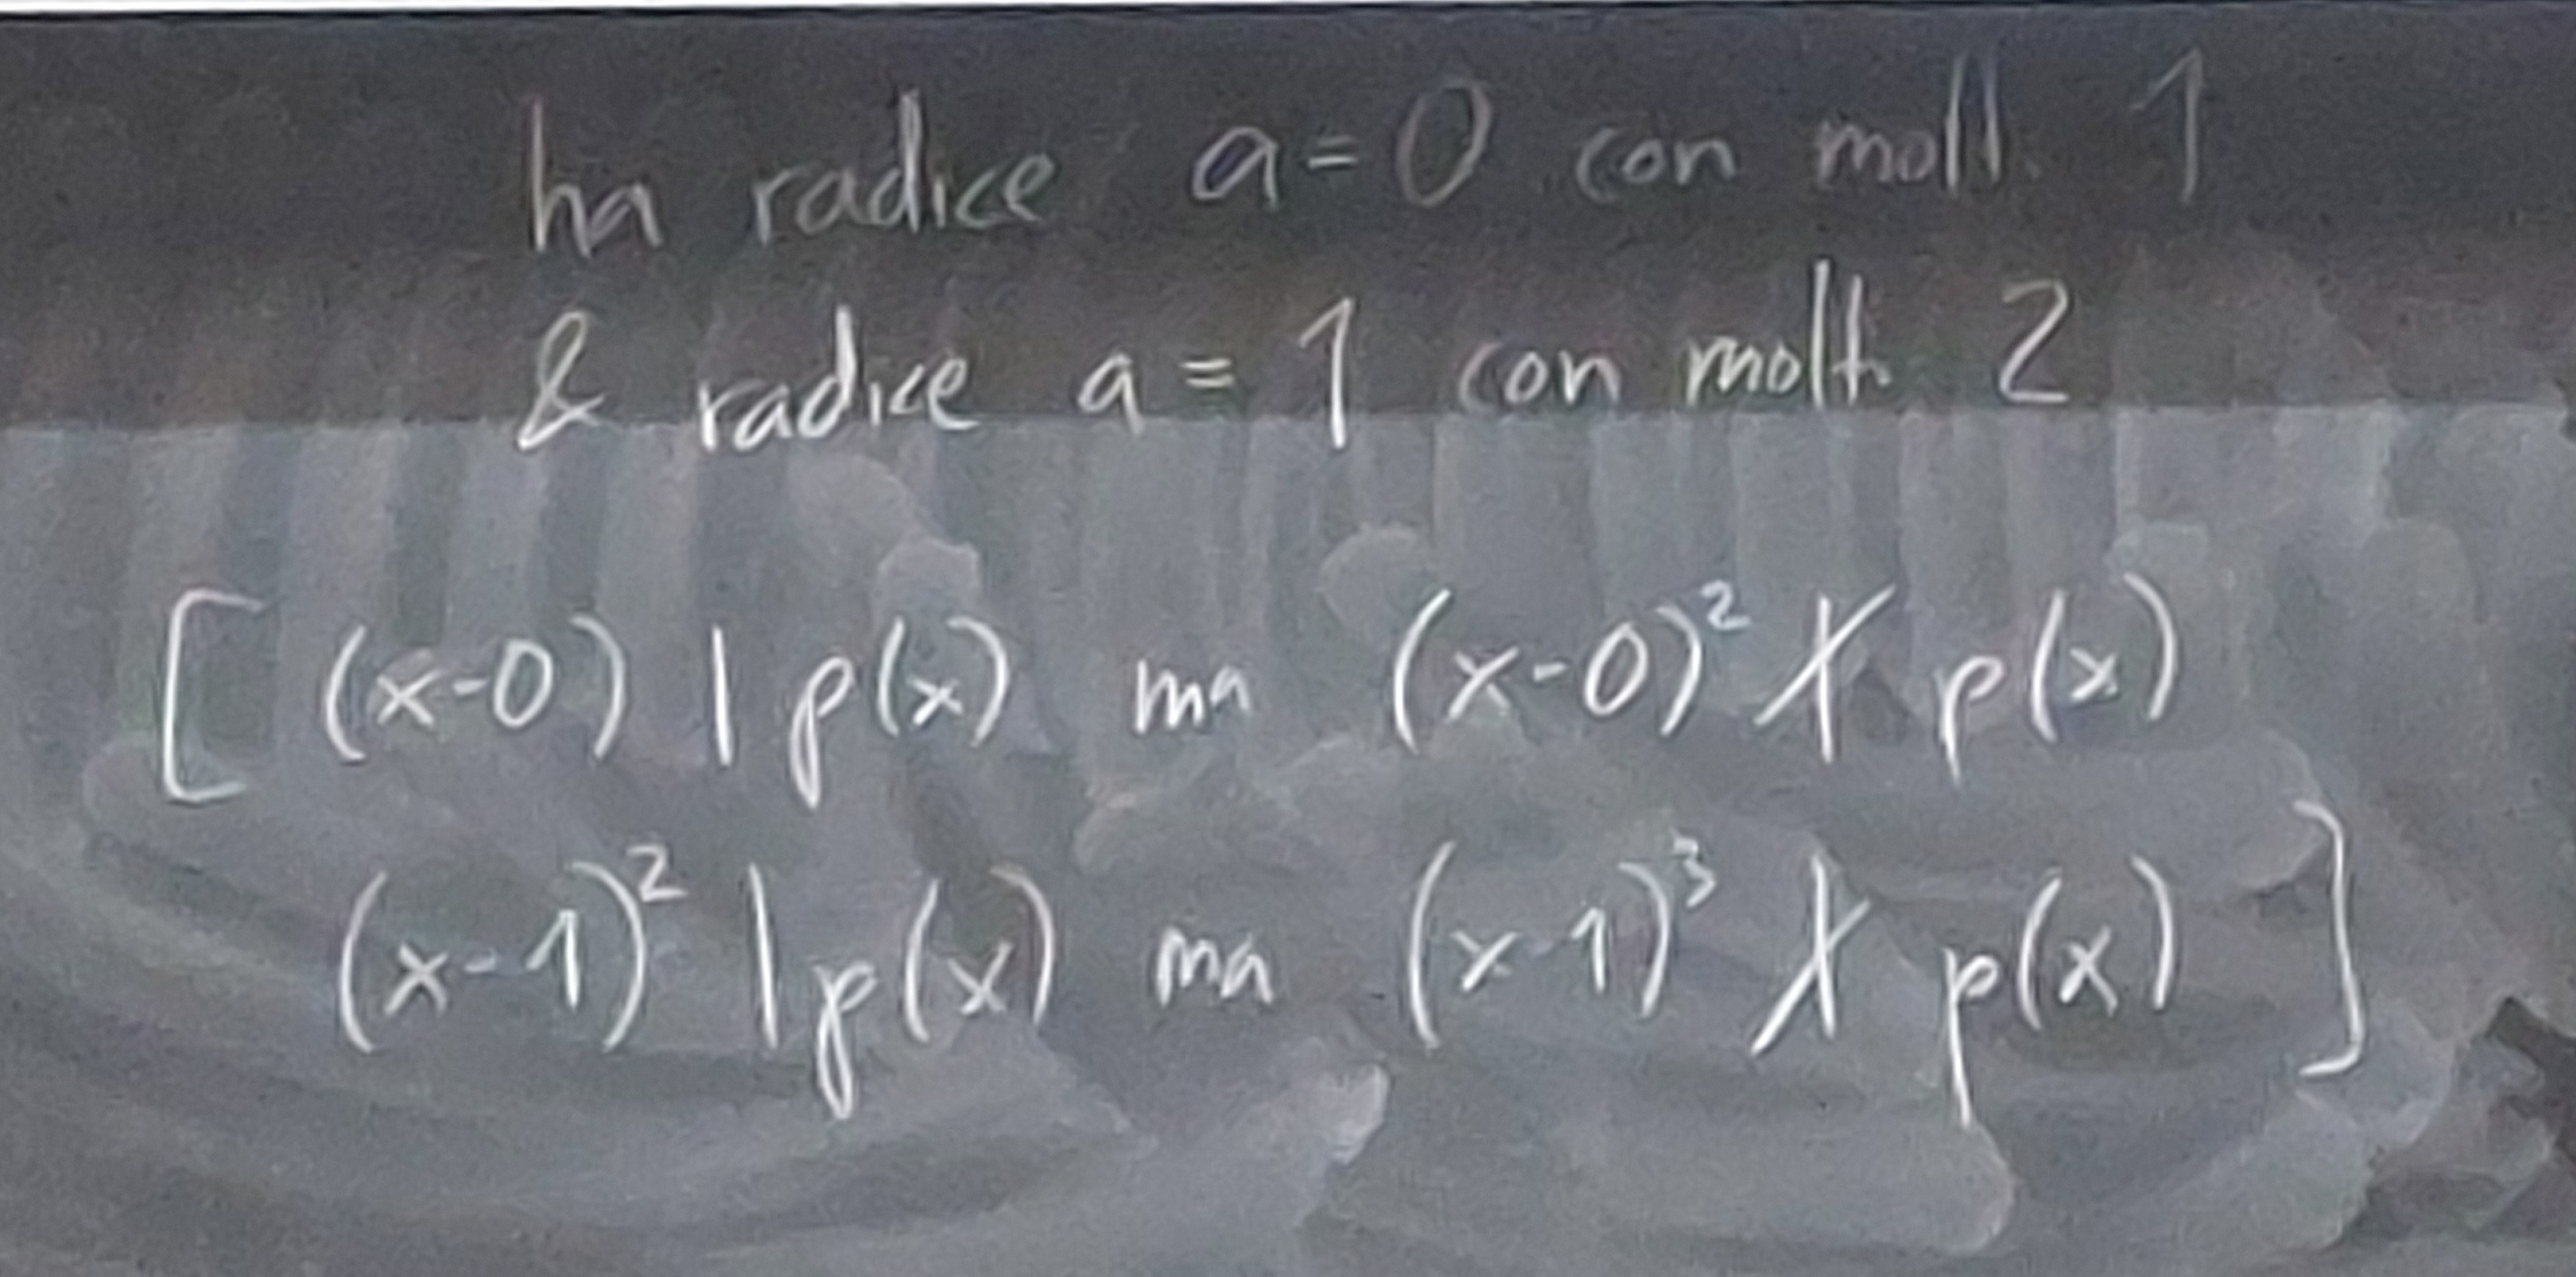 ha radice a=0 con molt. 1
& radice a=1 con molt. 2
[ (x-0) | p(x) ma (x-0)² ∤ p(x)
(x-1)² | p(x) ma (x-1)³ ∤ p(x) ]